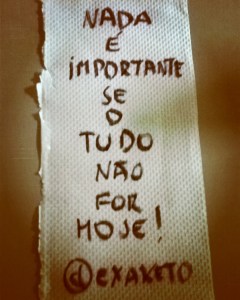 NADA
É
IMPORTANTE
SE
O
TUDO
NÃO
FOR
HOJE!
@EXAKETO